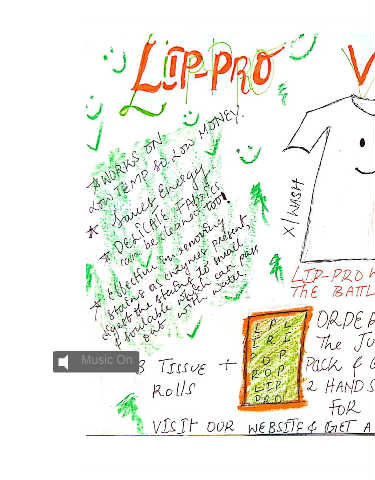 LIP-PRO
V
★ WORKS ON
LOW TEMP SO LOW MONEY.
★ Saves Energy
★ DELICATE FABRICS
can be cleaned too!
★ Effective in removing
stains as enzymes present,
digest the stains to small
soluable which can pass
out with water.
X1 WASH
LIP-PRO
THE BATTL
ORDER
The Ju
3 TISSUE + PACK & G
ROLLS 2 HANDS
FOR
LPL
IRI
OP
ROP
LIP
PRO
Music On
VISIT OUR WEBSITE & GET A